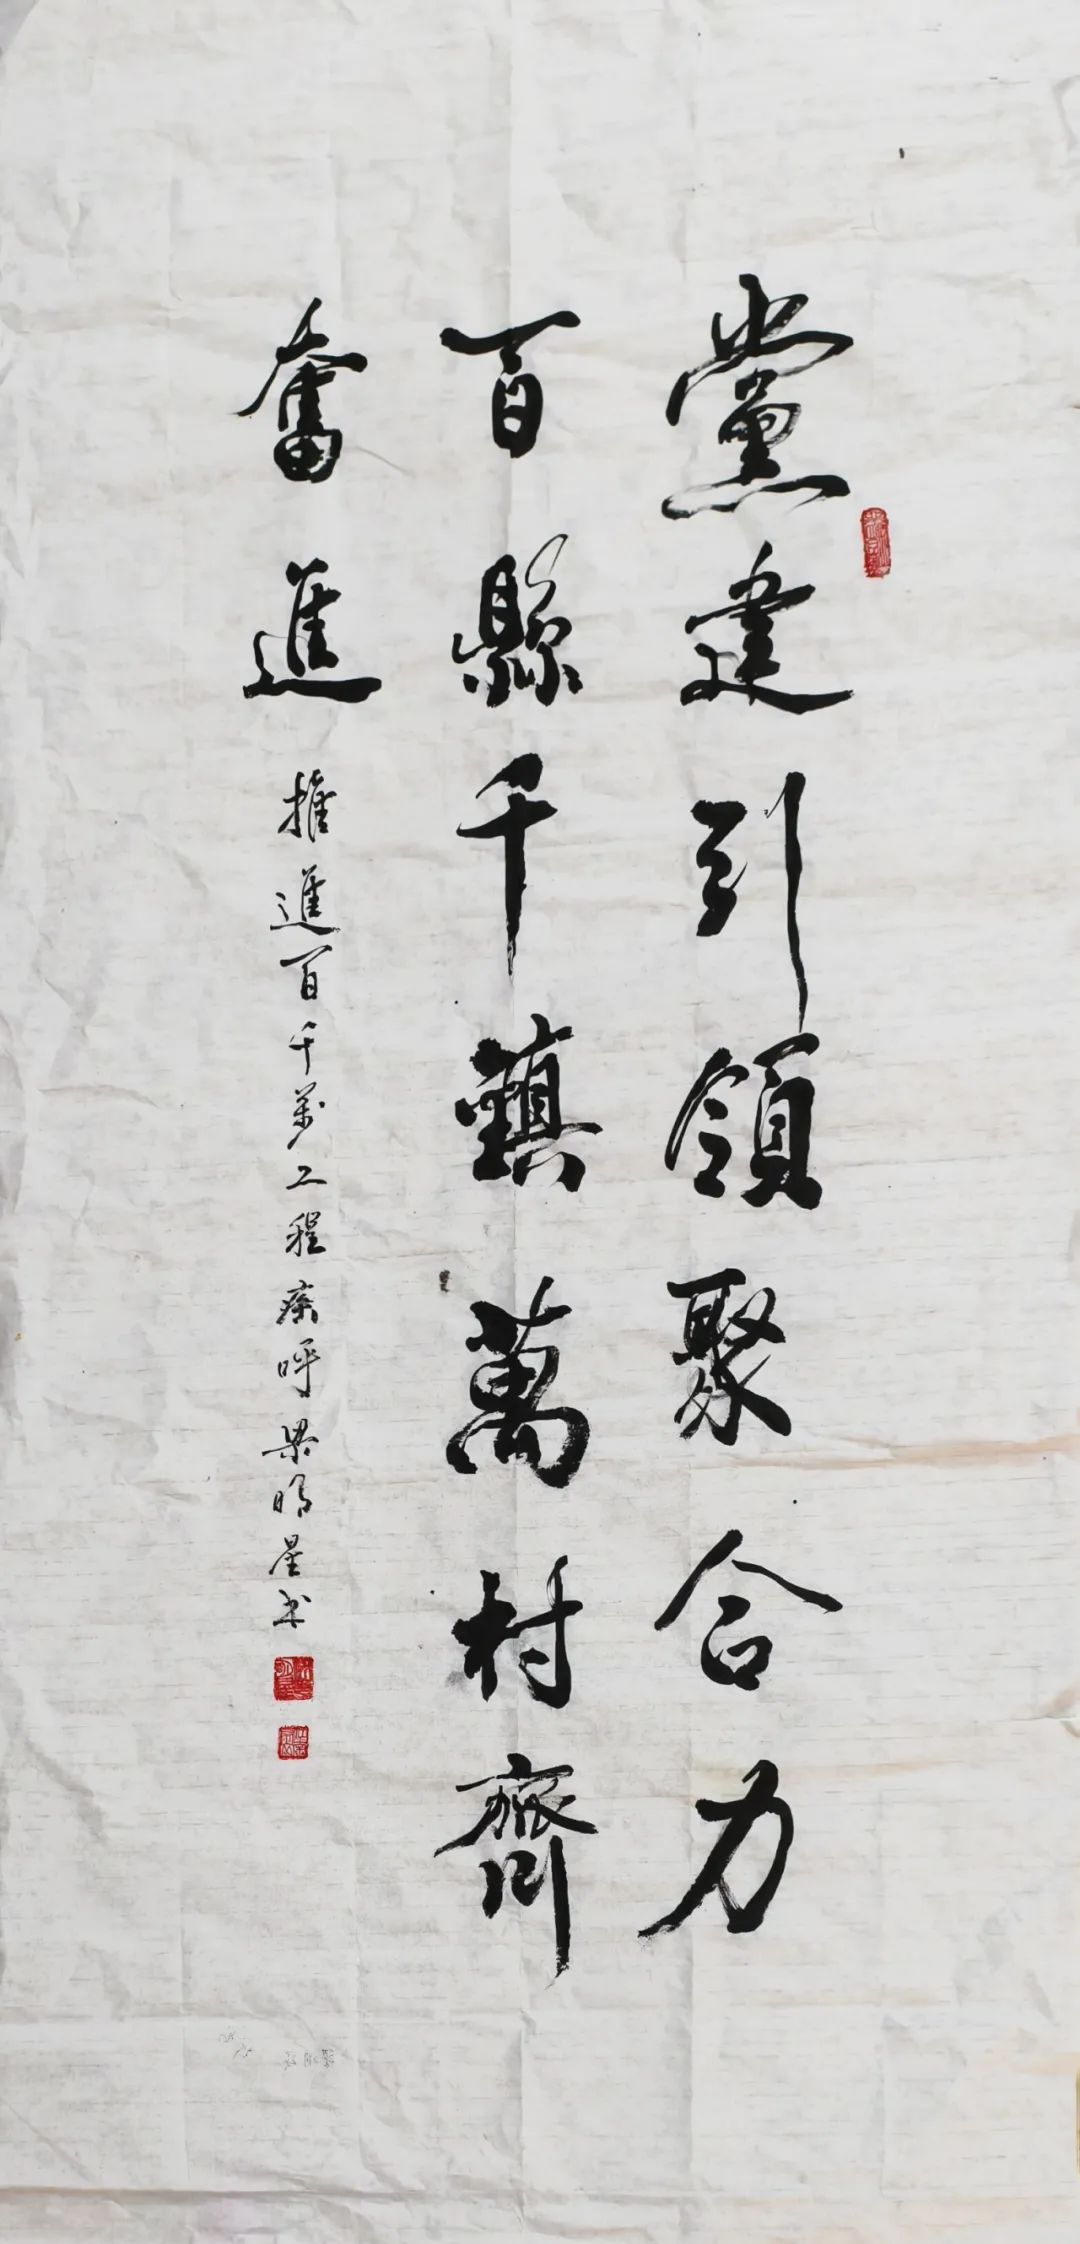 黨建引領聚合力
百縣千鎮萬村齊
奮進
推進百千萬工程疾呼梁明星书